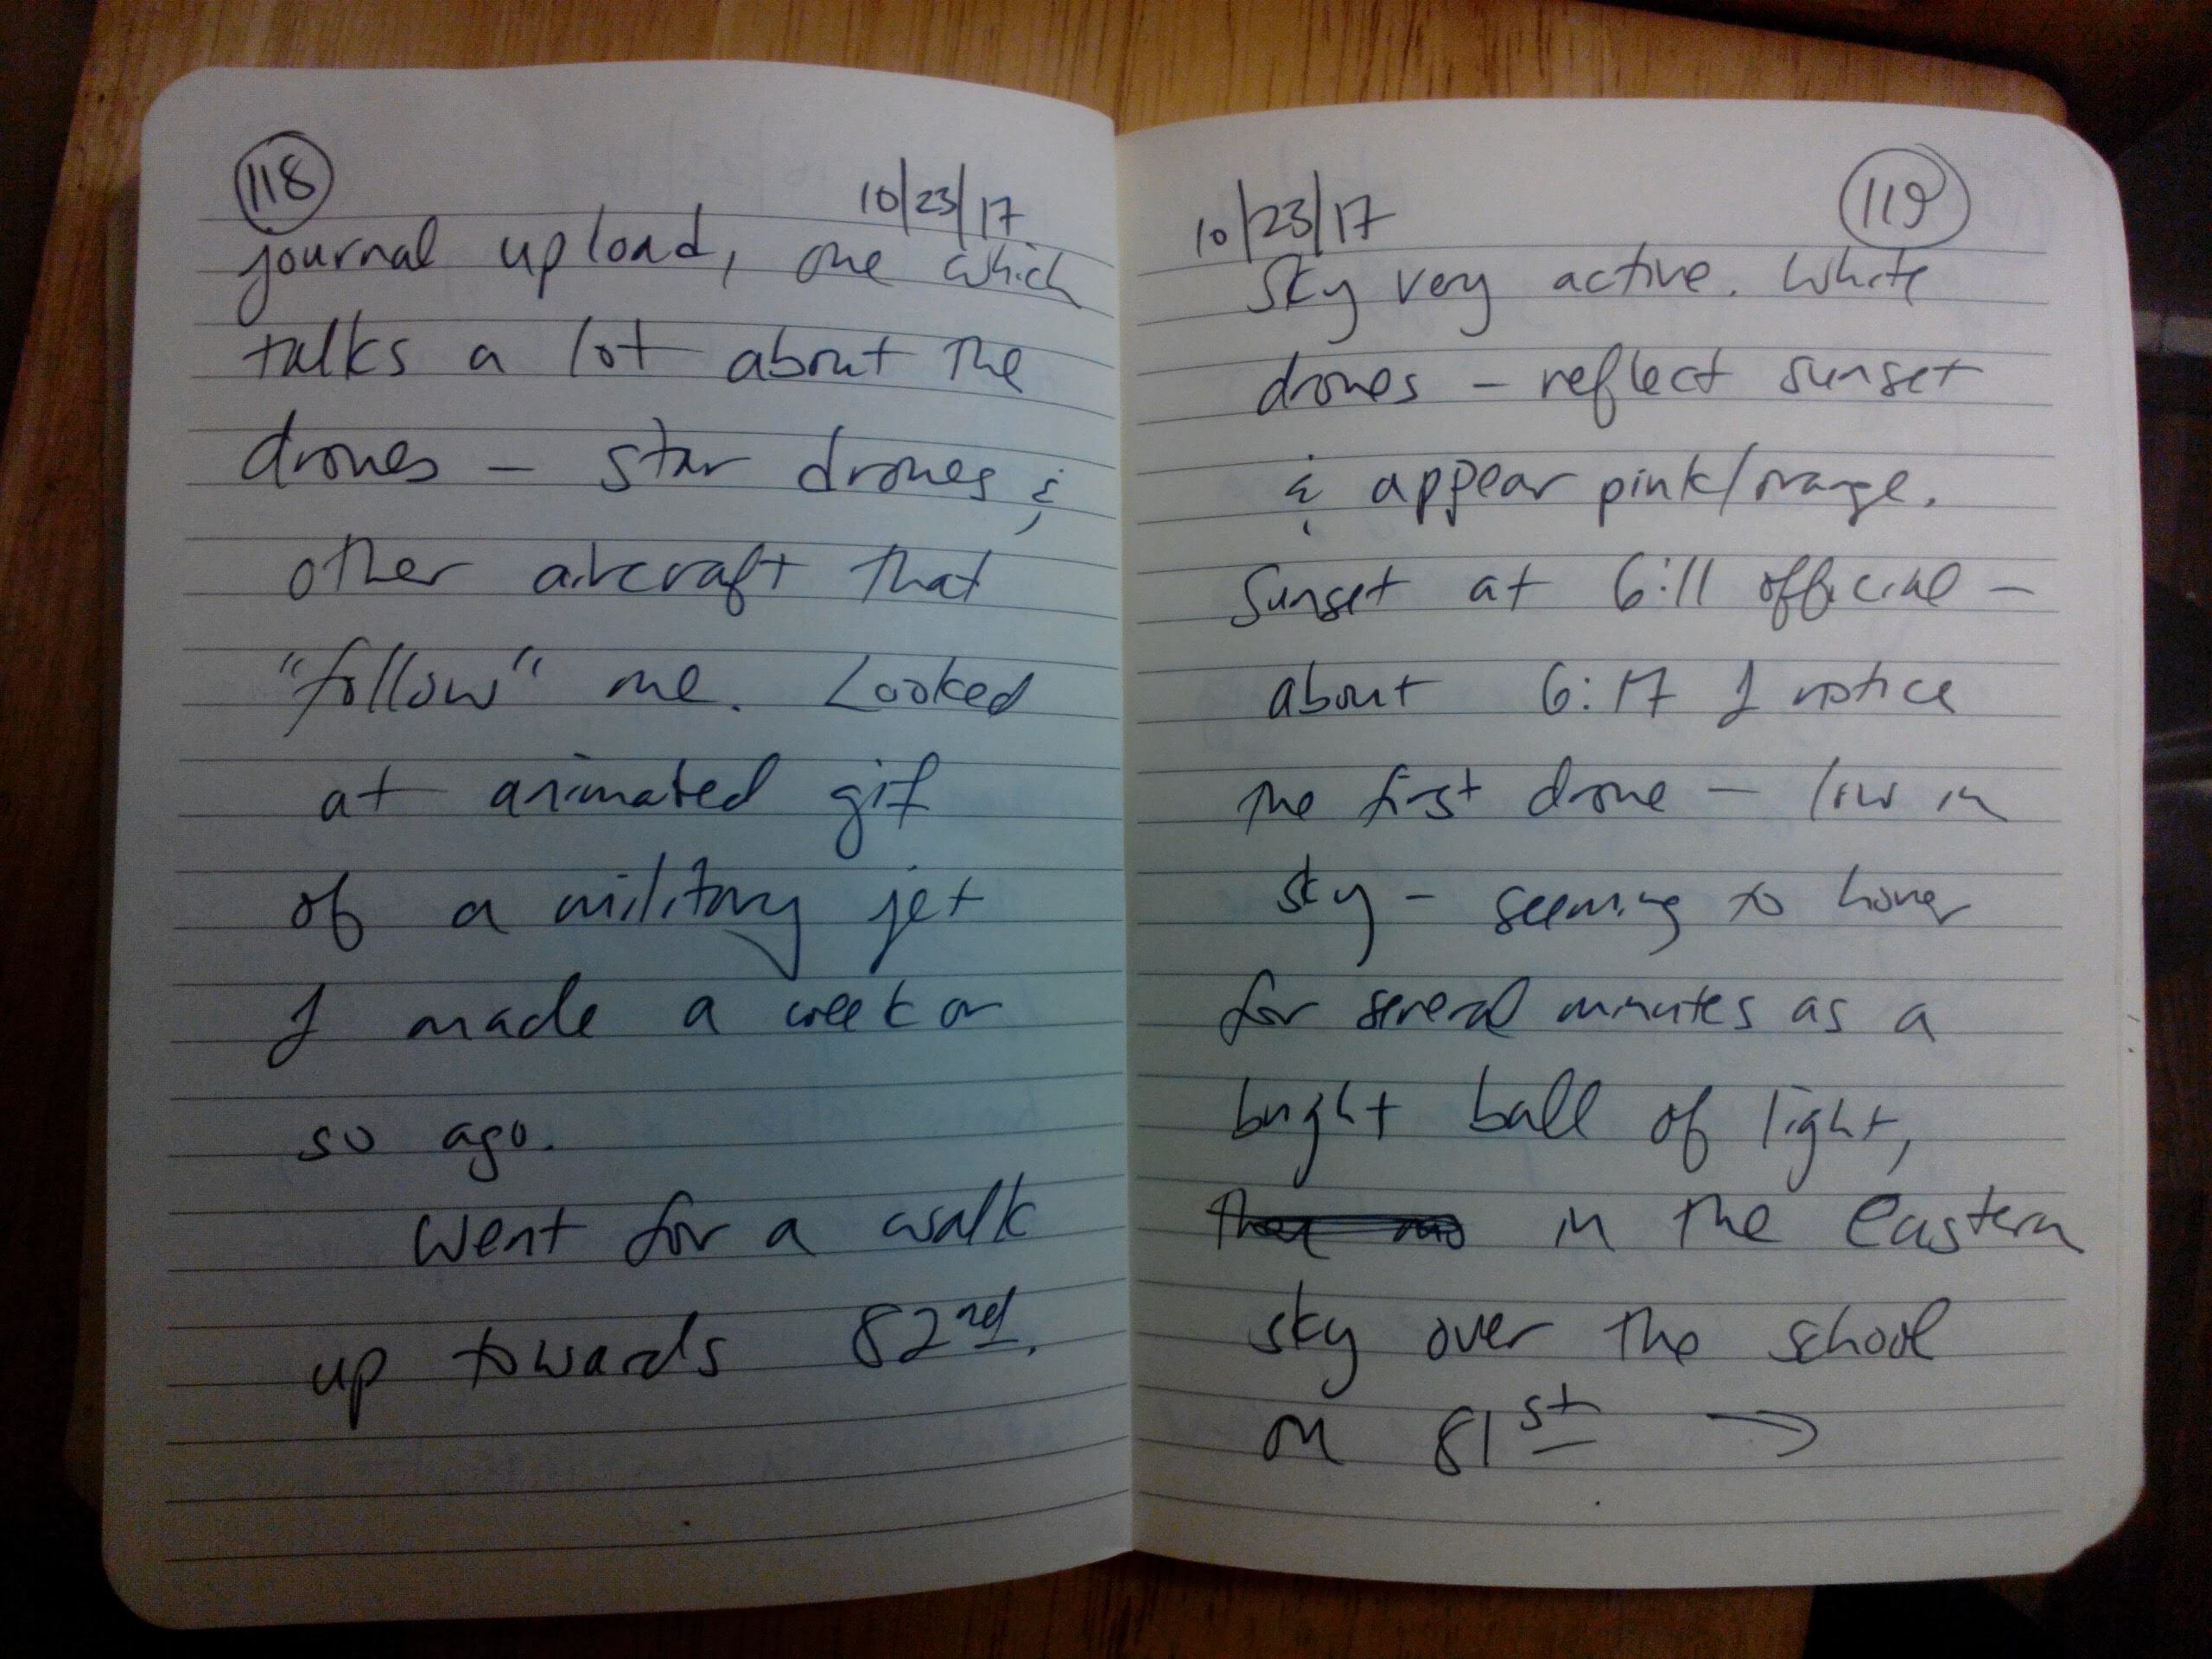 118
10/23/17
journal upload, one which
talks a lot about the
drones – star drones &
other aircraft that
"follow" me. Looked
at animated gif
of a military jet
I made a week or
so ago.
Went for a walk
up towards 82nd.
10/23/17
119
Sky very active. White
drones – reflect sunset
& appear pink/orange.
Sunset at 6:11 official –
about 6:17 I notice
the first drone – low in
sky – seeming to hover
for several minutes as a
bright ball of light,
in the Eastern
sky over the school
on 81st →